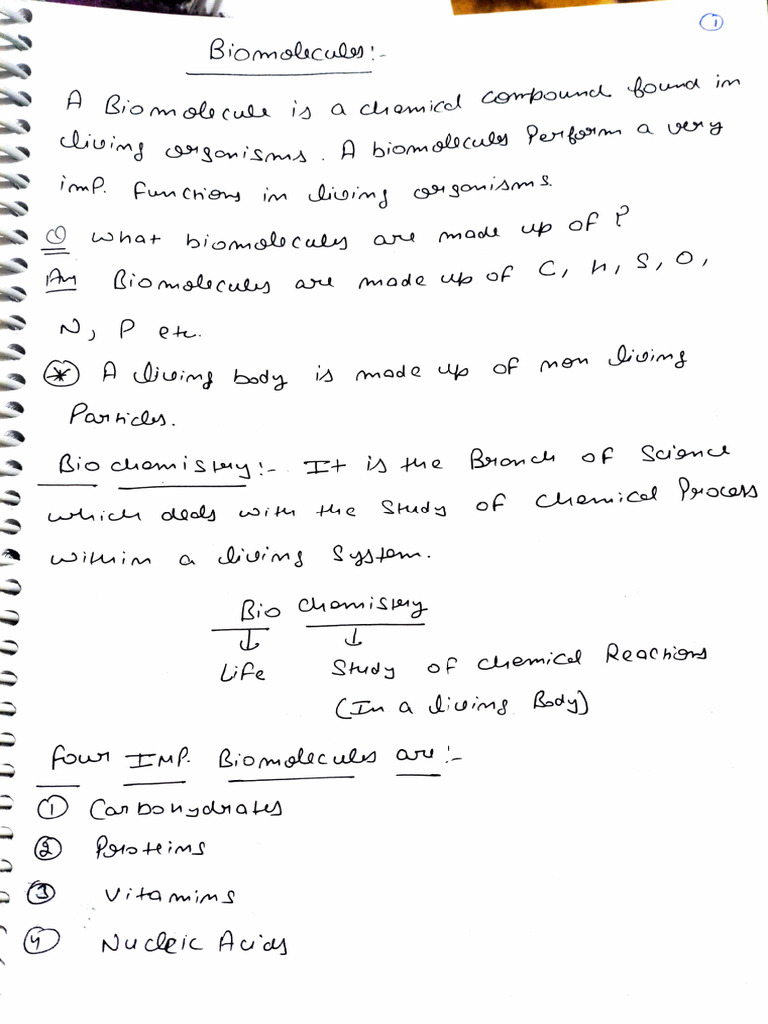 1
Biomolecules:-
A Biomolecule is a chemical compound found in
living organisms. A biomolecules Perform a very
imp. functions in living organisms.
Q What biomolecules are made up of ?
Ans Biomolecules are made up of C, H, S, O,
N, P etc.
* A living body is made up of non living
Particles.
Bio chemistry:- It is the Branch of Science
which deals with the Study of Chemical Process
within a living System.
Bio Chemistry
↓ ↓
Life Study of Chemical Reactions
(In a living Body)
Four IMP. Biomolecules are:-
1 Carbohydrates
2 Proteins
3 Vitamins
4 Nucleic Acids